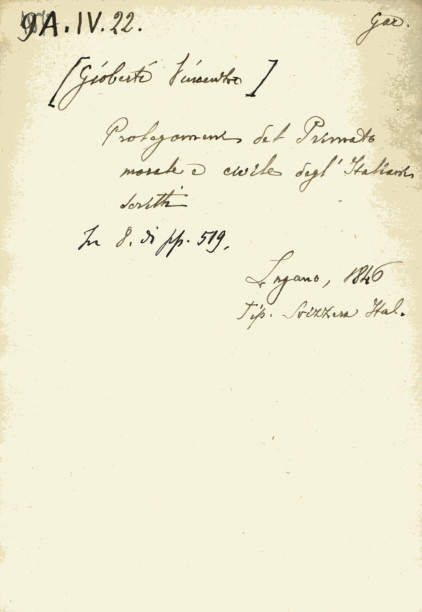 9A.IV.22.
Gar.
[Gioberti Vincenzo]
Prolegomeni del Primato
morale e civile degl' Italiani
scritti
In 8. di pp. 519.
Lugano, 1846
Tip. Svizzera Ital.